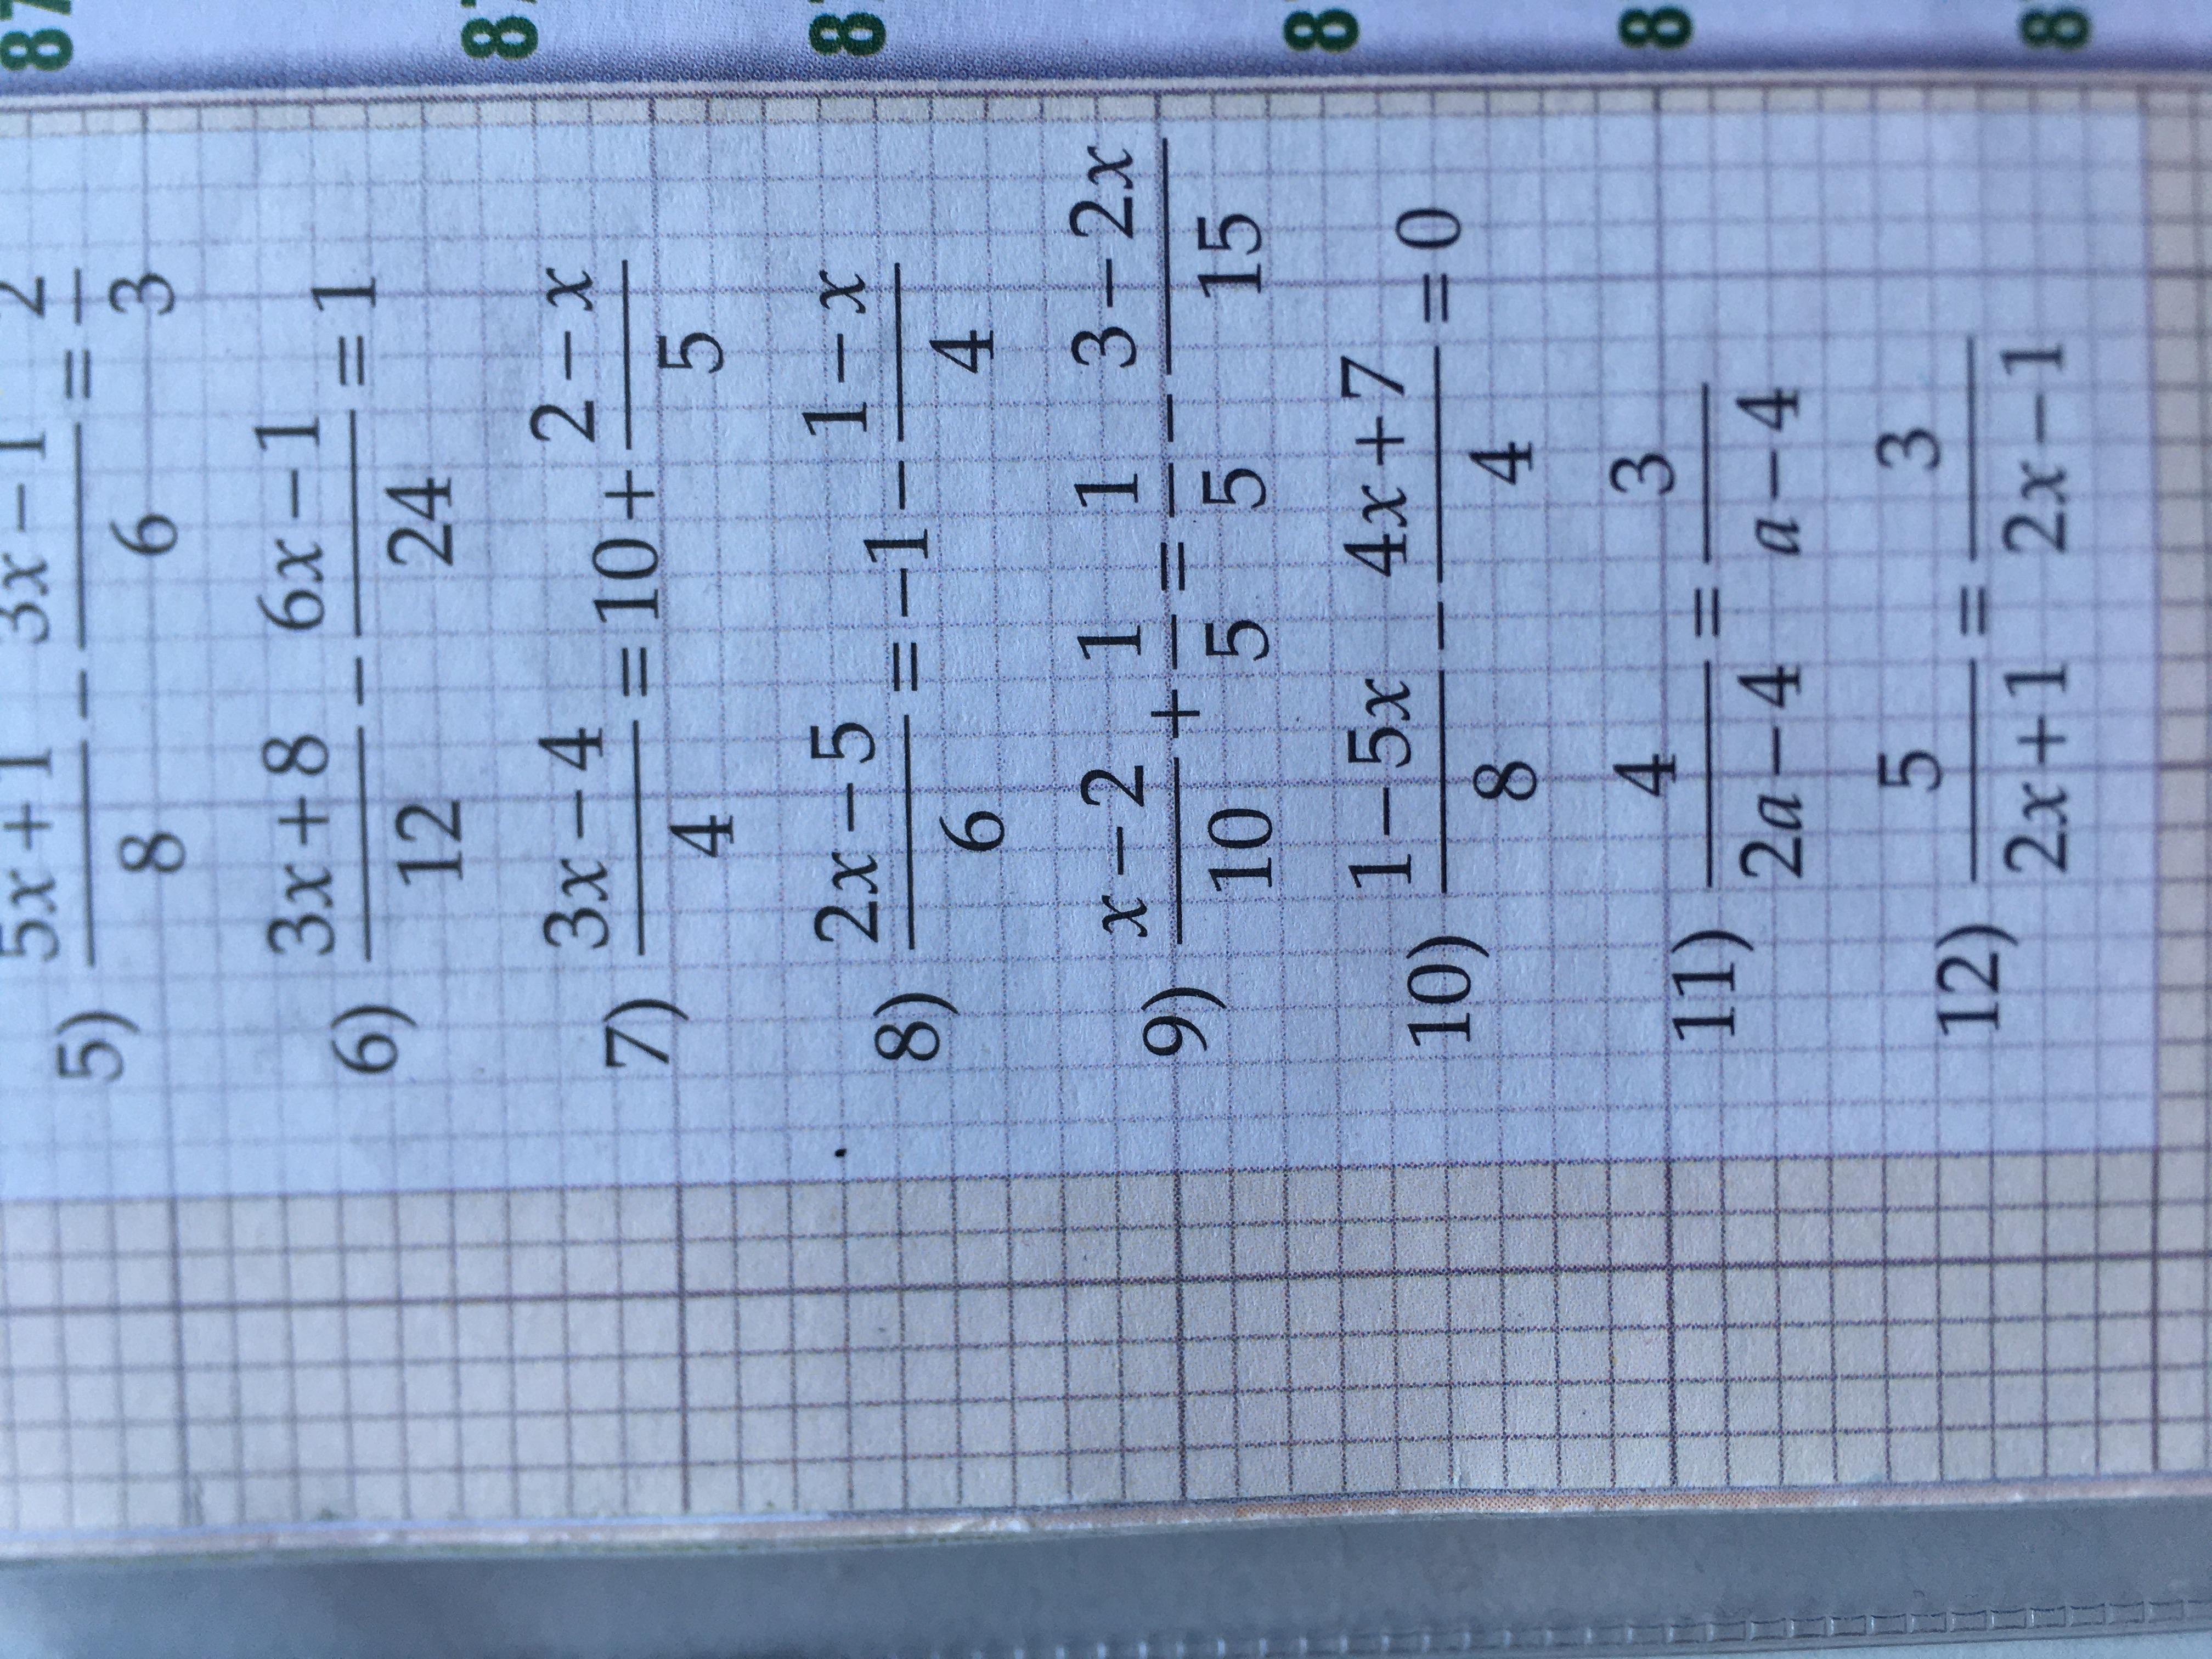 5) (5x+1)/8 − (3x−1)/6 = 2/3
6) (3x+8)/12 − (6x−1)/24 = 1
7) (3x−4)/4 = 10 + (2−x)/5
8) (2x−5)/6 = −1 − (1−x)/4
9) (x−2)/10 + 1/5 = 1/5 − (3−2x)/15
10) (1−5x)/8 − (4x+7)/4 = 0
11) 4/(2a−4) = 3/(a−4)
12) 5/(2x+1) = 3/(2x−1)